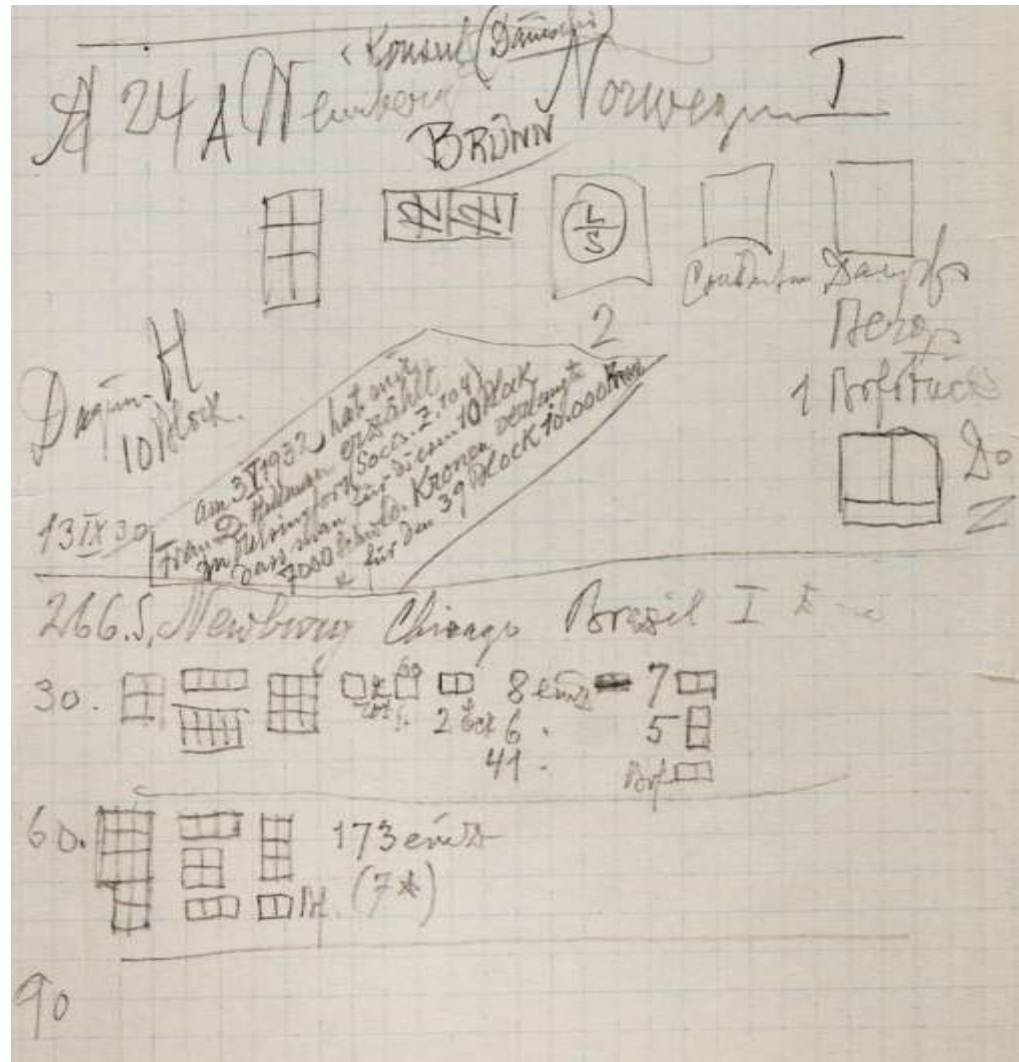 Konsul (Dänischer)
A 24 A Newberg Norwegen I
BRÜNN
L
S
2
Dampf
1 Brfstück
Do
H
10 Block.
13 IX 30
am 3 V 1932 hat mir
Frau D. Hellman erzählt
in Helsingfors (Soccs. Z. 704)
dass man für diesen 10 Block
7000 Kronen verlangte
* für den 39 Block 10.000 Kron
266.S. Newbrouy Chicago Brasil I
30. 8 einz 7
2 6 . 5
41 - Brf
60. 173 einz
(7*)
90